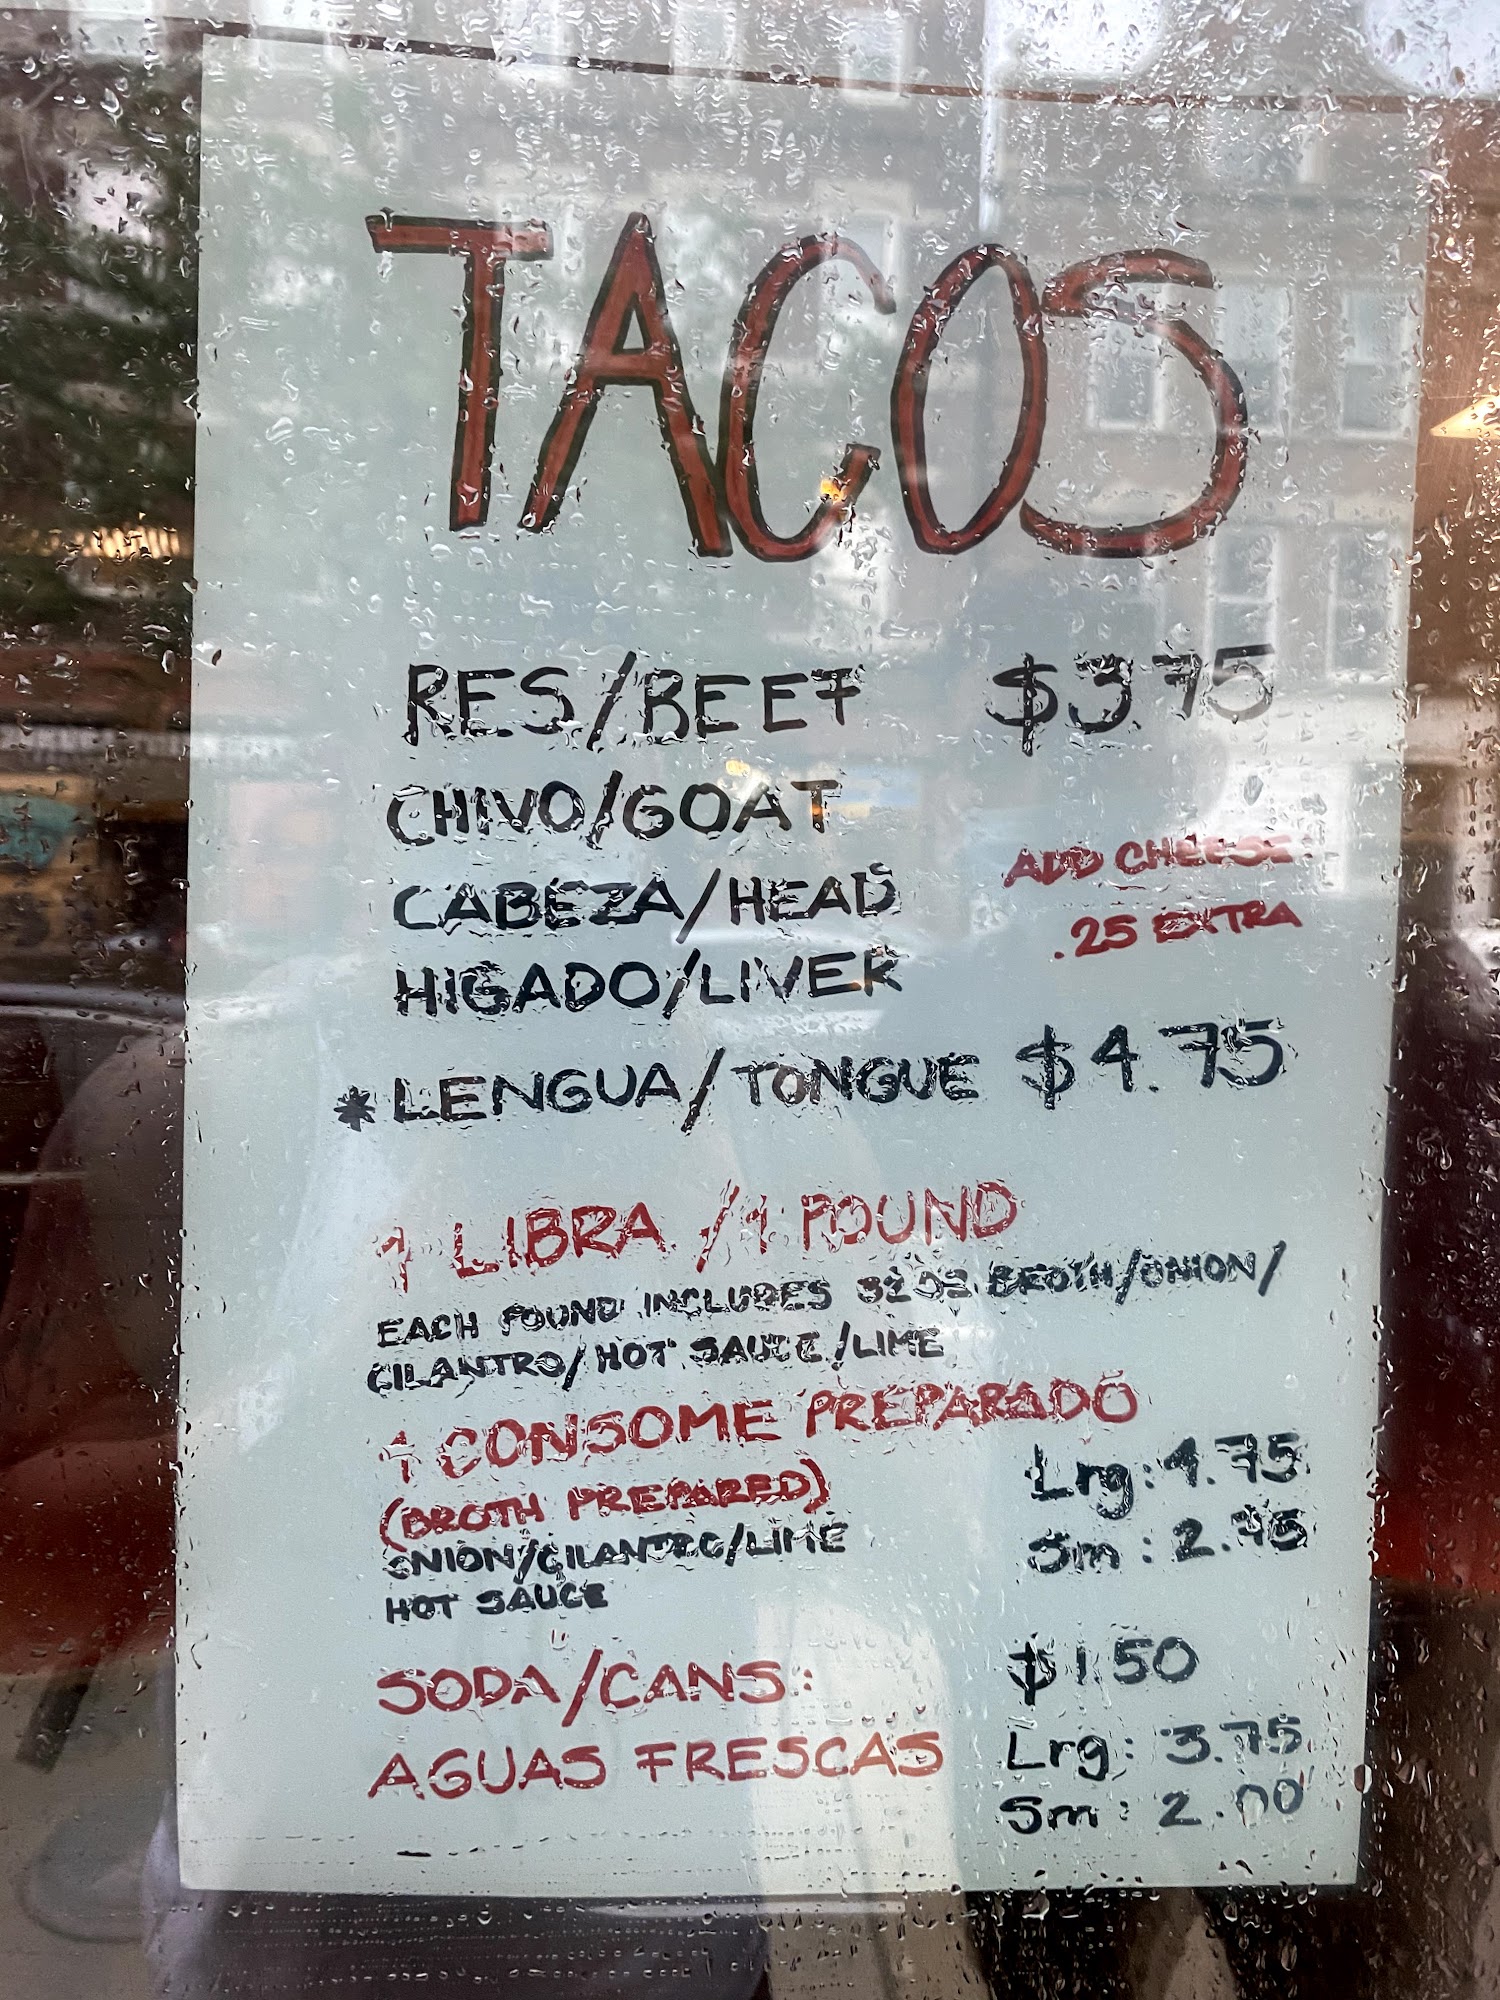 TACOS
RES/BEEF $3.75
CHIVO/GOAT
CABEZA/HEAD
ADD CHEESE
.25 EXTRA
HIGADO/LIVER
*LENGUA/TONGUE $4.75
1 LIBRA/1 POUND
EACH POUND INCLUDES 32 OZ BROTH/ONION/
CILANTRO/HOT SAUCE/LIME
1 CONSOME PREPARADO
(BROTH PREPARED)
Lrg: 4.75
ONION/CILANTRO/LIME
Sm: 2.75
HOT SAUCE
SODA/CANS: $1.50
AGUAS FRESCAS Lrg: 3.75
Sm: 2.00